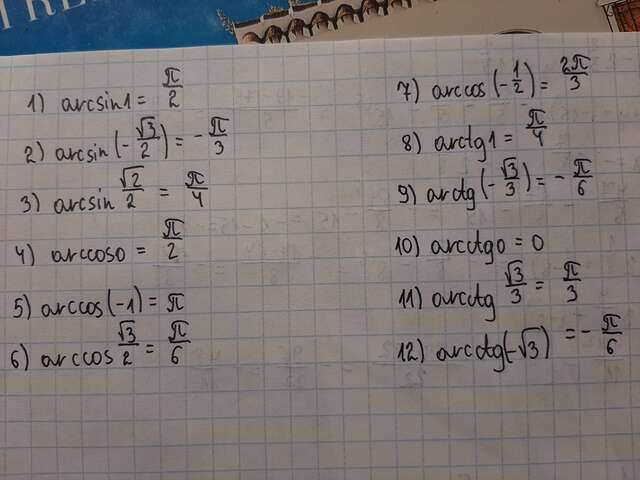 TRE
1) arcsin1 = π/2
2) arcsin(-√3/2) = -π/3
3) arcsin √2/2 = π/4
4) arccos0 = π/2
5) arccos(-1) = π
6) arccos √3/2 = π/6
7) arccos(-1/2) = 2π/3
8) arctg1 = π/4
9) arctg(-√3/3) = -π/6
10) arcctg0 = 0
11) arcctg √3/3 = π/3
12) arcctg(-√3) = -π/6